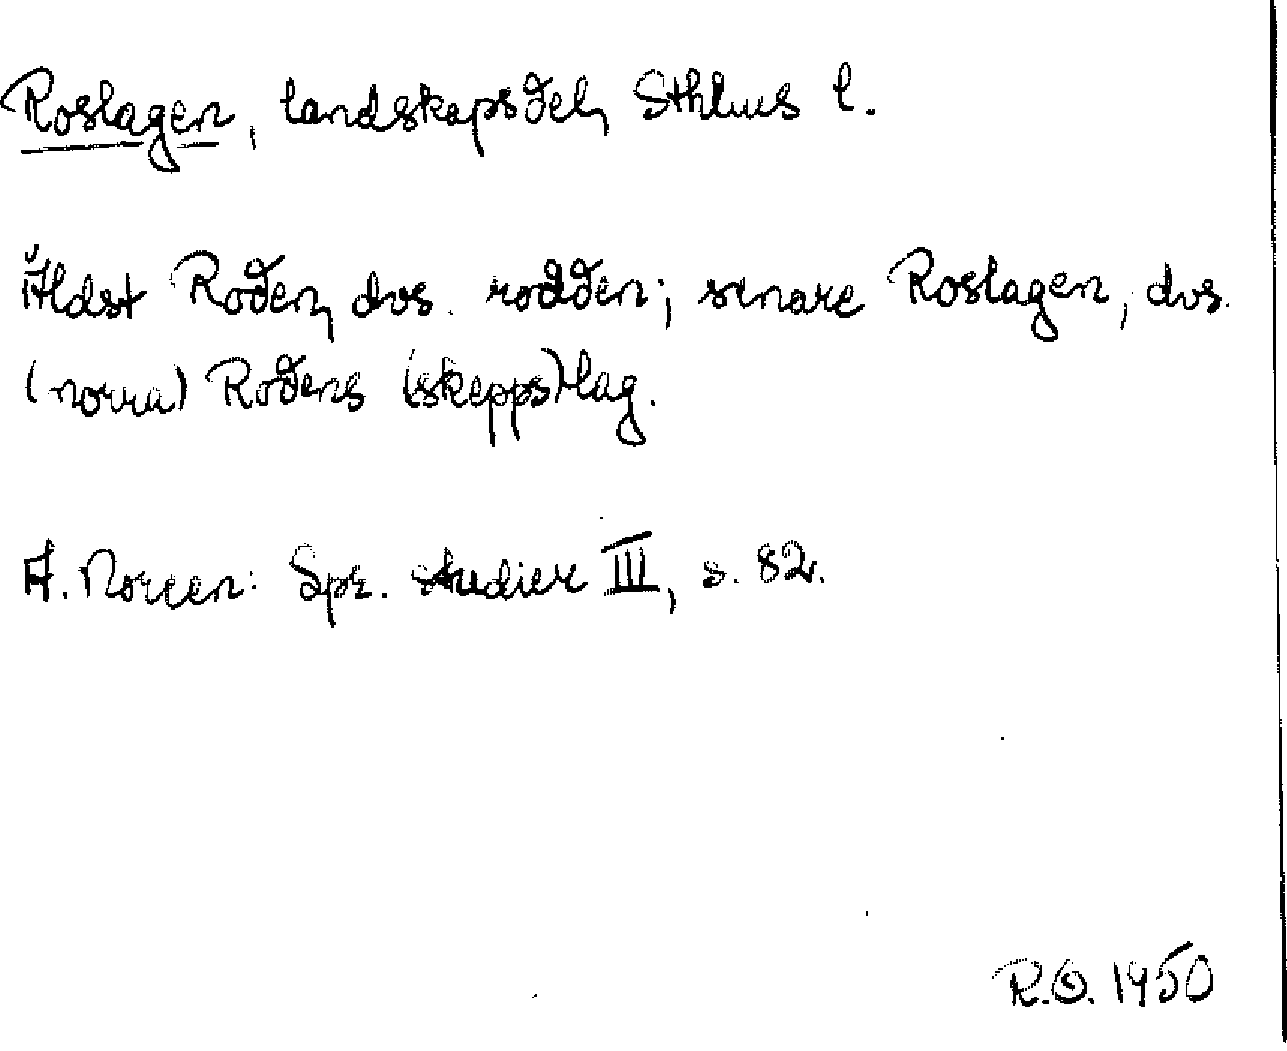 Roslagen, landskapsdel, Sthlms l.
Äldst Roden, dvs. rodden; senare Roslagen, dvs.
(norra) Rodens (skepps)lag.
A. Noreen: Spr. studier III, s. 82.
R.O. 1950